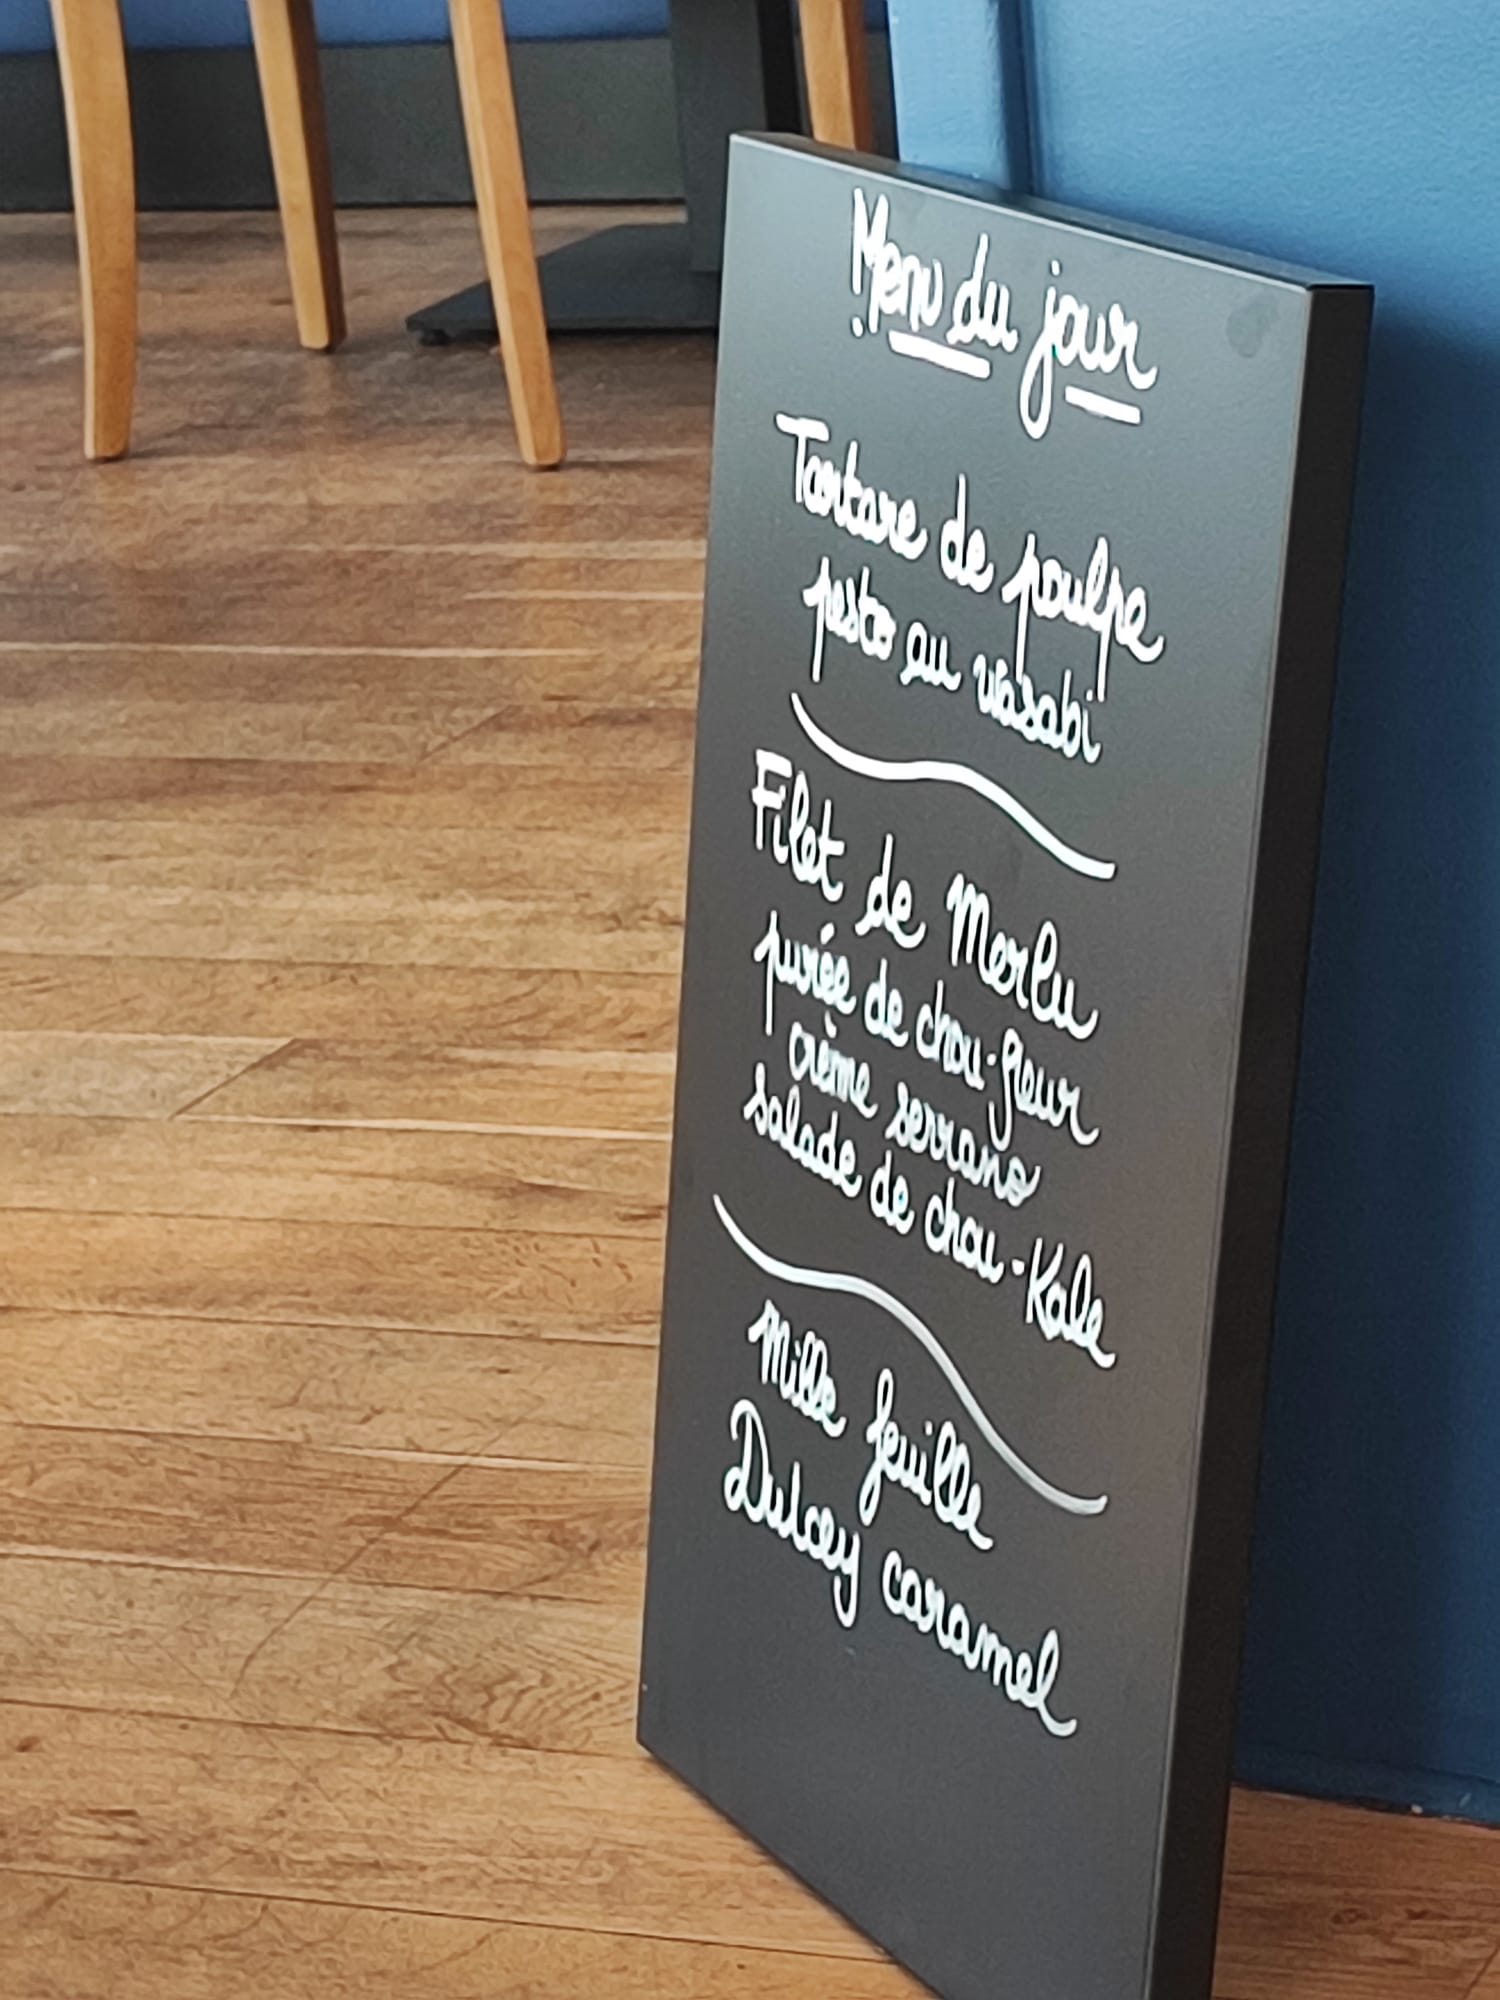 Menu du jour
Tartare de poulpe
pesto au wasabi
Filet de Merlu
purée de chou-fleur
crème serrano
salade de chou-Kale
Mille feuille
Dulcey caramel